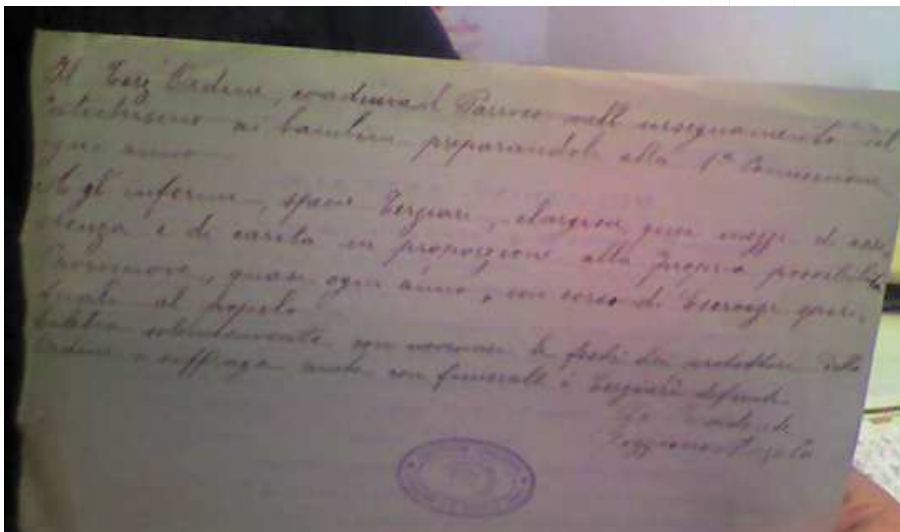 Il Terz'Ordine, coadiuva il Parroco nell'insegnamento del
Catechismo ai bambini preparandoli alla 1ª Comunione
ogni anno
Agl'infermi, specie Terziari, elargisce quei mezzi d'assi
stenza e di carità in proporzione alla propria possibilità
Promuove, quasi ogni anno, un corso di Esercizi spiri
tuali al popolo
solennemente ogni le feste dei protettori dello
Ordine e suffraga anche con funerali i Terziari defunti